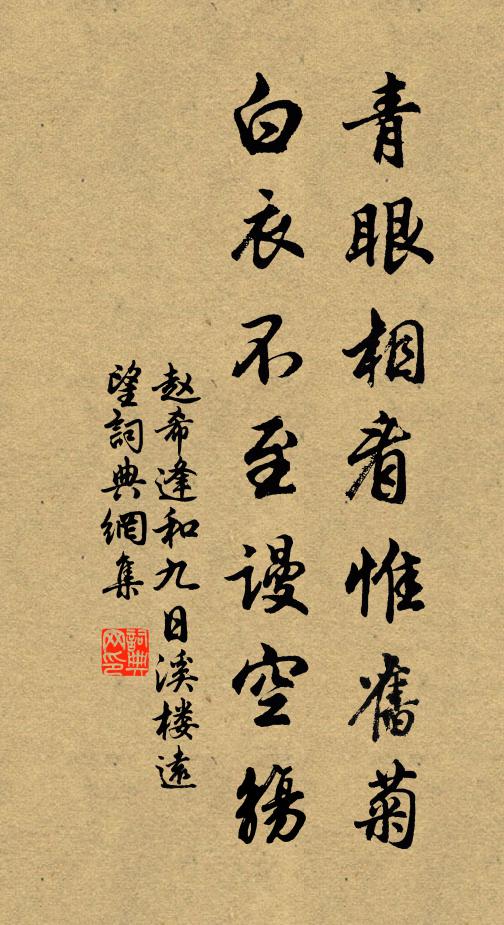 青眼相看惟舊菊
白衣不至謾空觴
赵希逢和九日溪楼遠
望詞典網集
詞典
网印